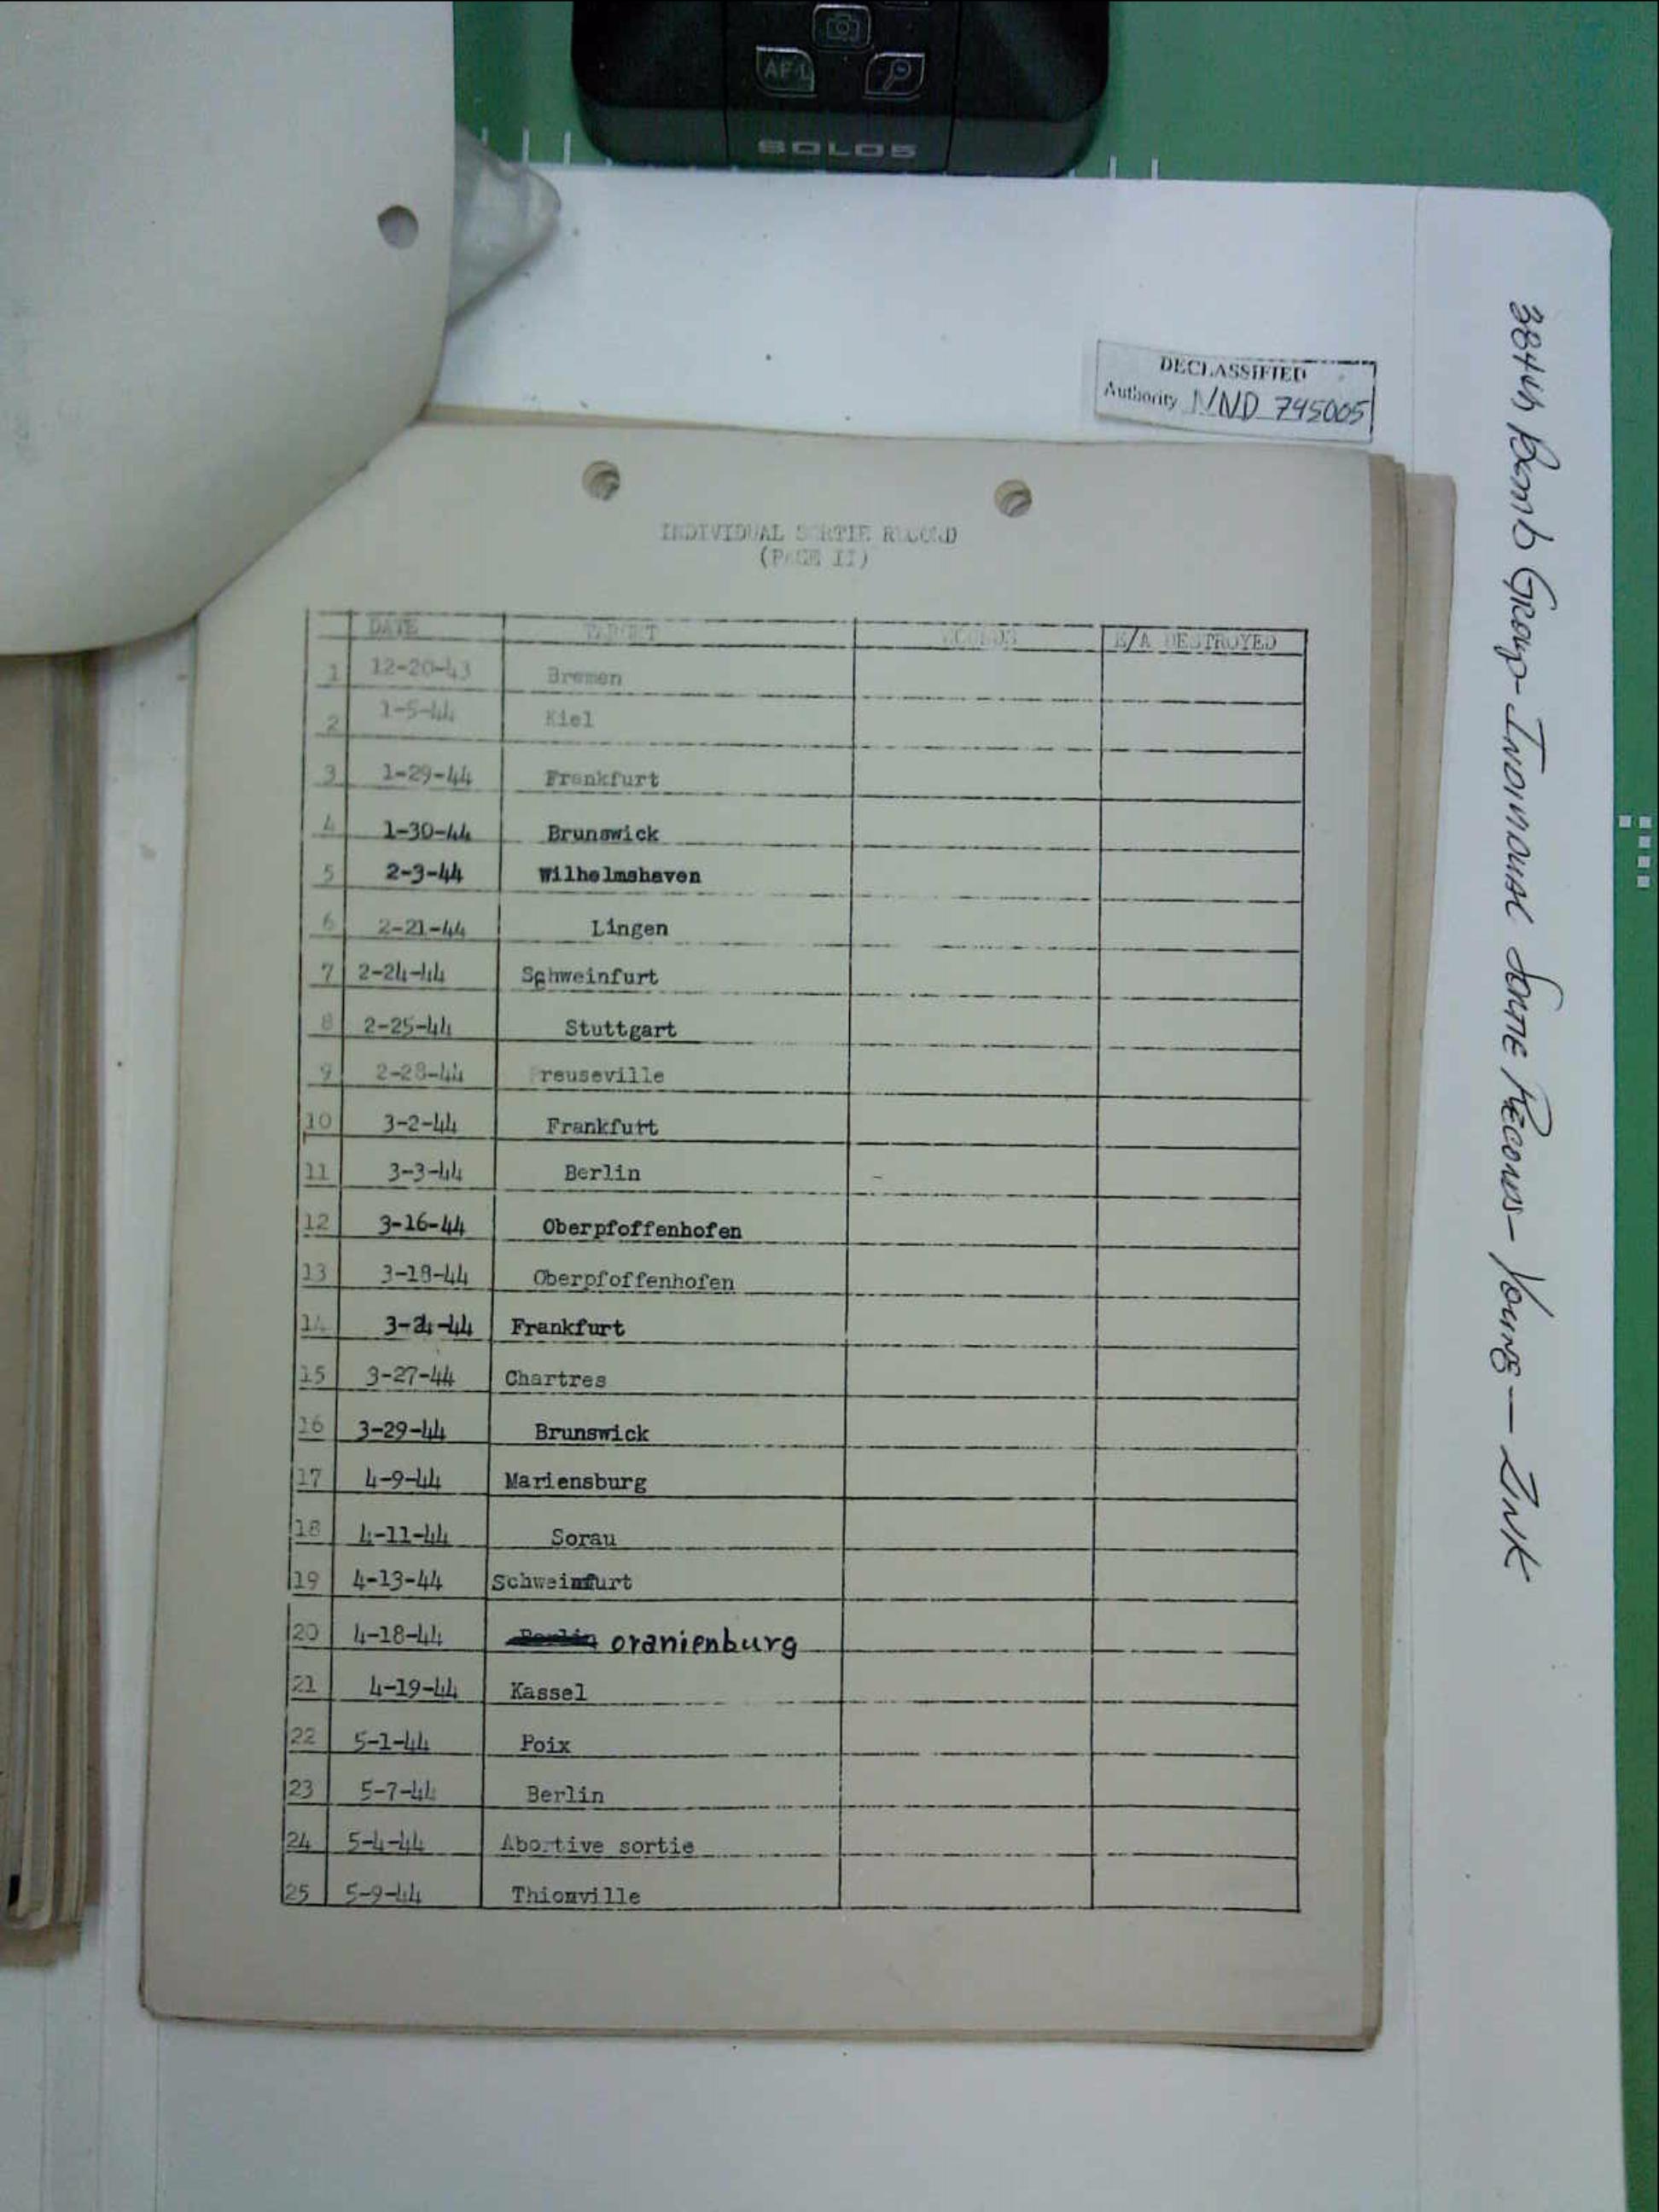 AF-L
SOLO5
DECLASSIFIED
Authority NND 745005
384th Bomb Group - Individual Sortie Records - Young - Zink
INDIVIDUAL SORTIE RECORD
(PAGE II)
DATE TARGET WOUNDS E/A DESTROYED
1 12-20-43 Bremen
2 1-5-44 Kiel
3 1-29-44 Frankfurt
4 1-30-44 Brunswick
5 2-3-44 Wilhelmshaven
6 2-21-44 Lingen
7 2-24-44 Schweinfurt
8 2-25-44 Stuttgart
9 2-28-44 reuseville
10 3-2-44 Frankfurt
11 3-3-44 Berlin
12 3-16-44 Oberpfoffenhofen
13 3-18-44 Oberpfoffenhofen
14 Frankfurt
15 3-27-44 Chartres
16 3-29-44 Brunswick
17 4-9-44 Mariensburg
18 4-11-44 Sorau
19 4-13-44 Schweinfurt
20 4-18-44 Berlin oranienburg
21 4-19-44 Kassel
22 5-1-44 Poix
23 5-7-44 Berlin
24 5-4-44 Abortive sortie
25 5-9-44 Thionville